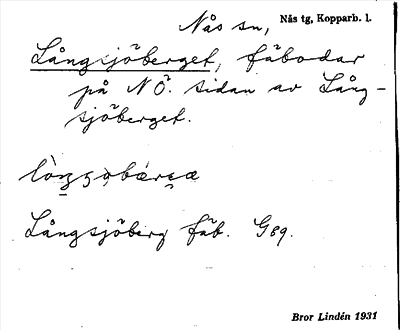 Nås sn, Nås tg, Kopparb. l.
Långsjöberget, fäbodar
på NÖ. sidan av Lång-
sjöberget.
Långsjöberg fäb. G89.
Bror Lindén 1931